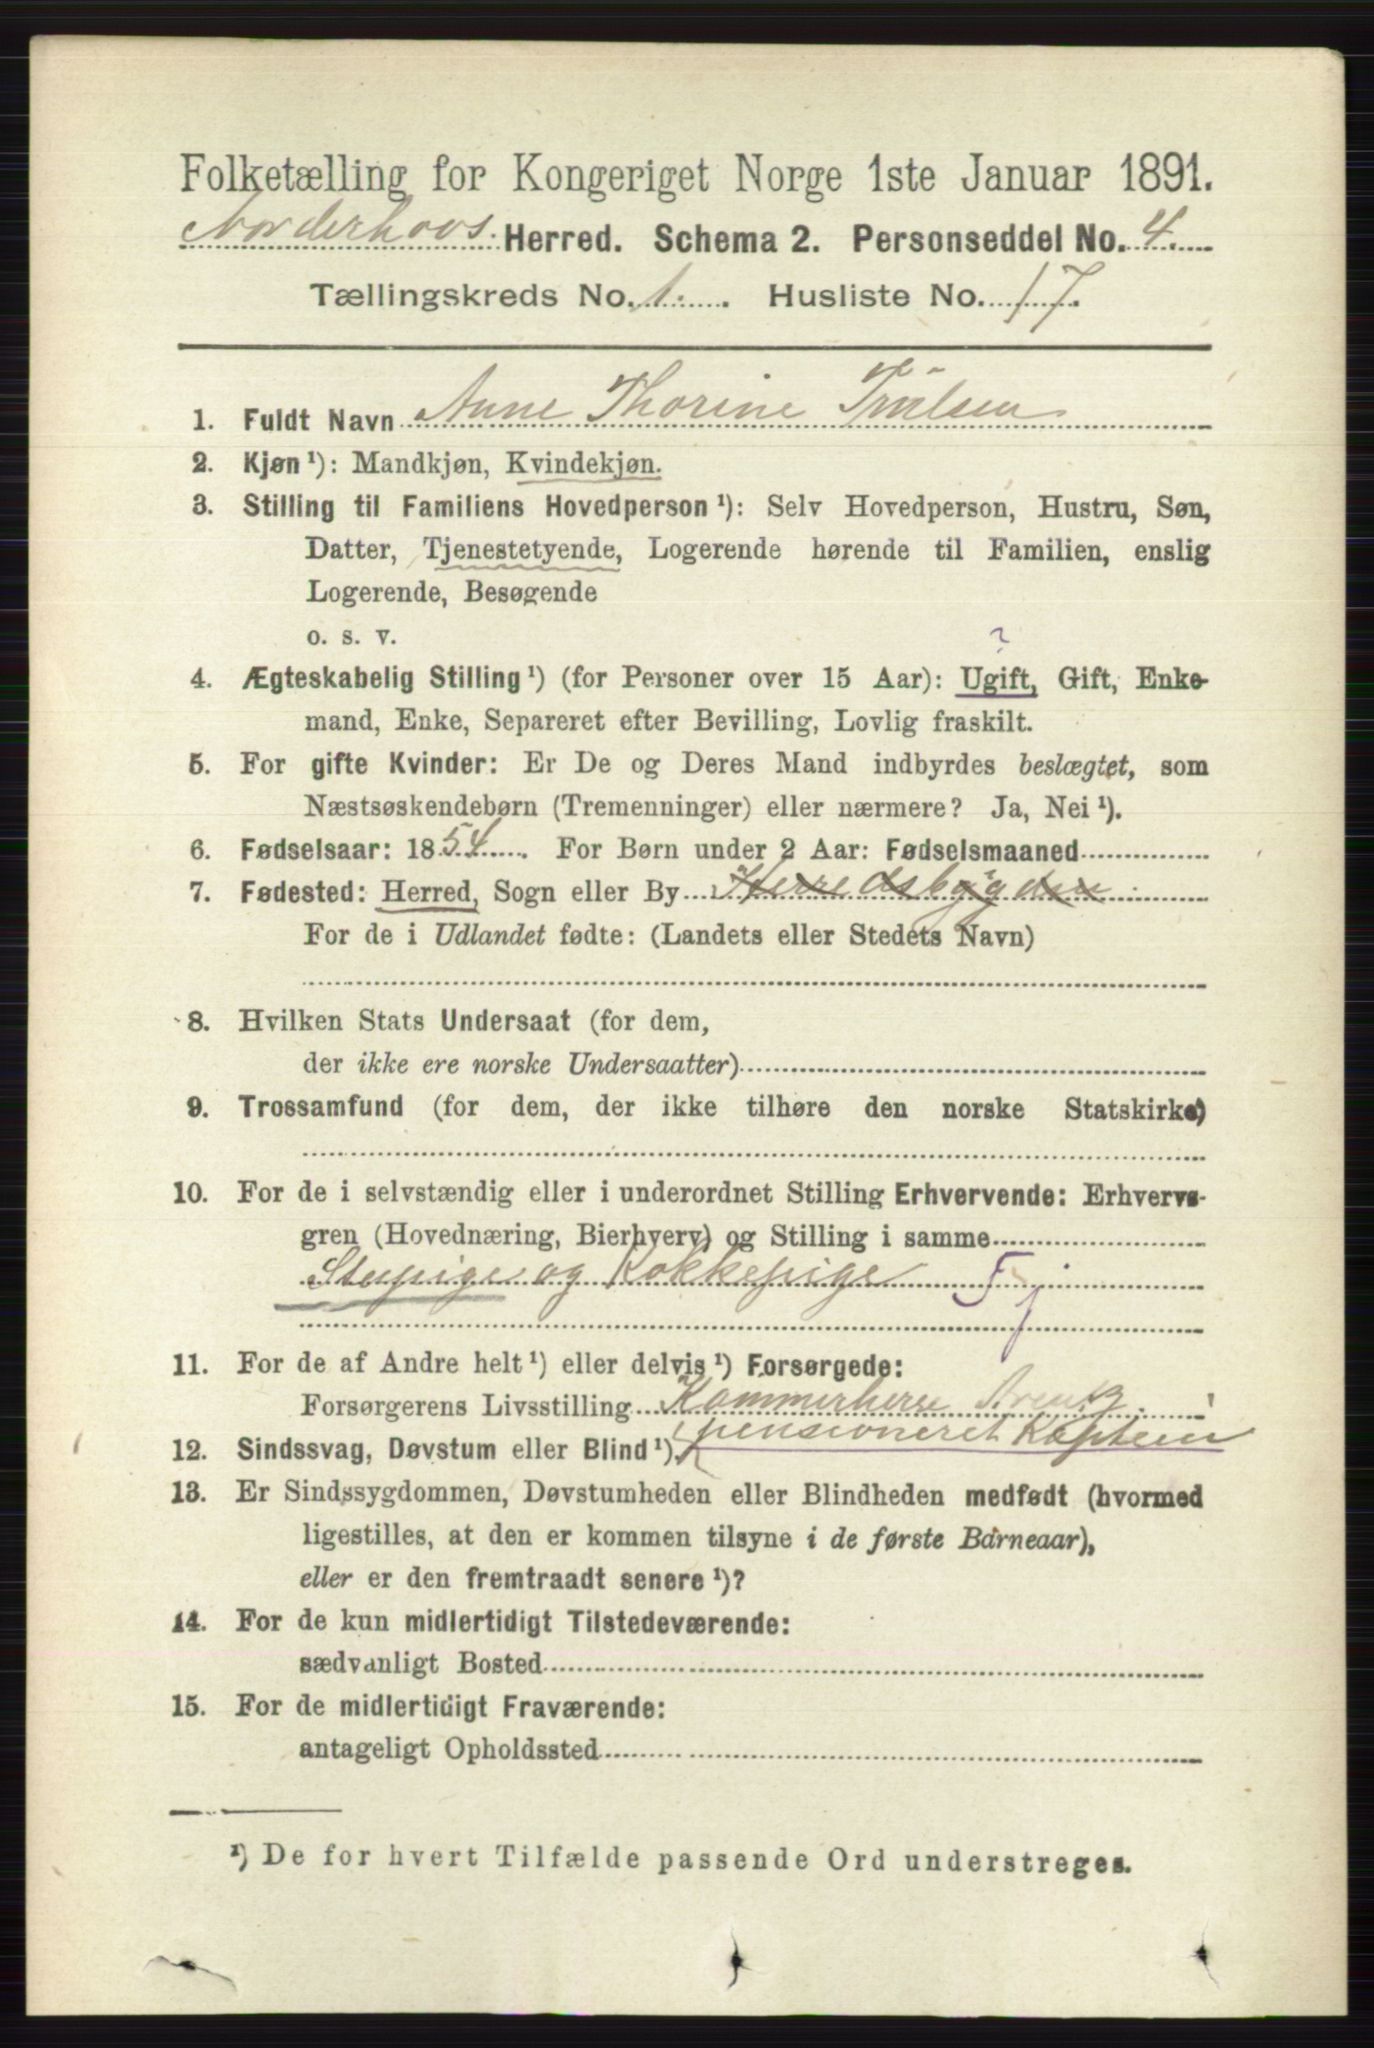 Folketælling for Kongeriget Norge 1ste Januar 1891.
Norderhovs Herred. Schema 2. Personseddel No. 4.
Tællingskreds No. 1. Husliste No. 17.
1. Fuldt Navn Anne Thorine
2. Kjøn ¹): Mandkjøn, Kvindekjøn.
3. Stilling til Familiens Hovedperson ¹): Selv Hovedperson, Hustru, Søn,
Datter, Tjenestetyende, Logerende hørende til Familien, enslig
Logerende, Besøgende
o. s. v.
?
4. Ægteskabelig Stilling ¹) (for Personer over 15 Aar): Ugift, Gift, Enke-
mand, Enke, Separeret efter Bevilling, Lovlig fraskilt.
5. For gifte Kvinder: Er De og Deres Mand indbyrdes beslægtet, som
Næstsøskendebørn (Tremenninger) eller nærmere? Ja, Nei ¹).
6. Fødselsaar: 1854. For Børn under 2 Aar: Fødselsmaaned
7. Fødested: Herred, Sogn eller By Herredsbygden
For de i Udlandet fødte: (Landets eller Stedets Navn)
8. Hvilken Stats Undersaat (for dem,
der ikke ere norske Undersaatter)
9. Trossamfund (for dem, der ikke tilhøre den norske Statskirke)
10. For de i selvstændig eller i underordnet Stilling Erhvervende: Erhvervs-
gren (Hovednæring, Bierhverv) og Stilling i samme
Stupige og Kokkepige Fj
11. For de af Andre helt ¹) eller delvis ¹) Forsørgede:
Forsørgerens Livsstilling Kammerherre
pensioneret Kaptein
12. Sindssvag, Døvstum eller Blind ¹).
13. Er Sindssygdommen, Døvstumheden eller Blindheden medfødt (hvormed
ligestilles, at den er kommen tilsyne i de første Barneaar),
eller er den fremtraadt senere ¹)?
14. For de kun midlertidigt Tilstedeværende:
sædvanligt Bosted
15. For de midlertidigt Fraværende:
antageligt Opholdssted
¹) De for hvert Tilfælde passende Ord understreges.